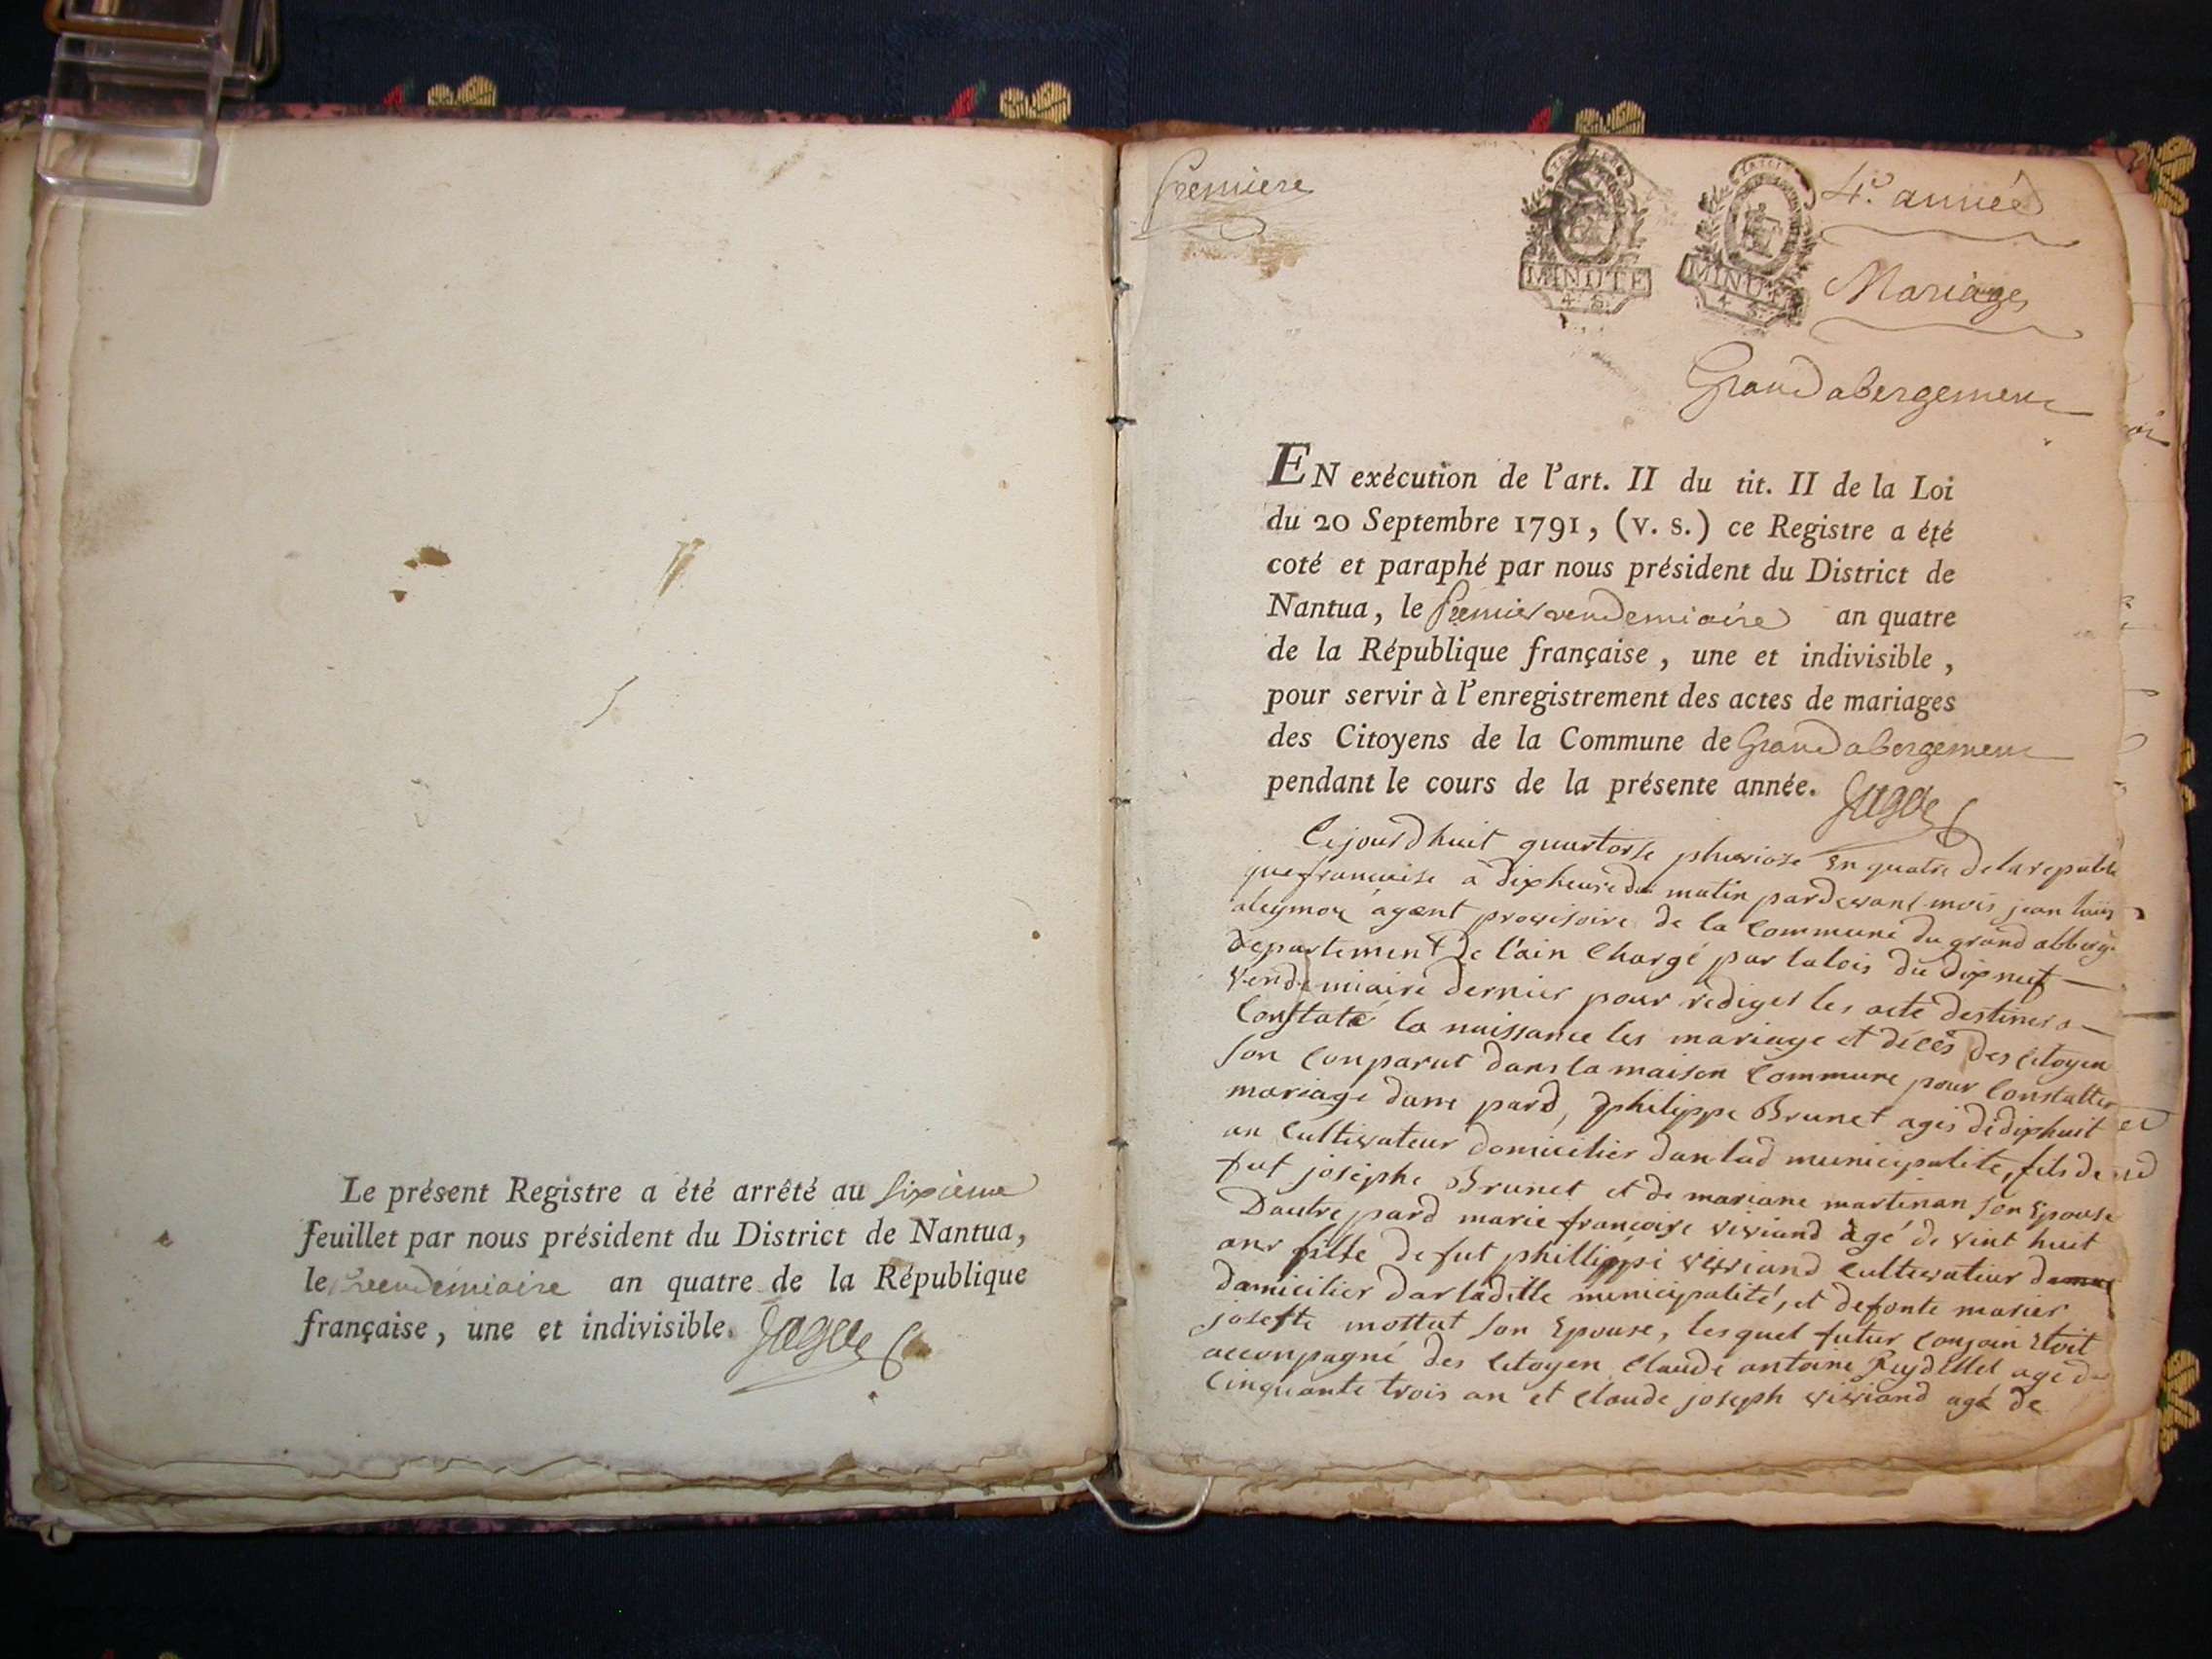 Le présent Registre a été arrêté au sixième
feuillet par nous président du District de Nantua,
le vendemiaire an quatre de la République
française, une et indivisible.
Premiere
MINUTE
4 S.
MINUTE
4 S.
4e. année
Mariages
Grand abergement
EN exécution de l'art. II du tit. II de la Loi
du 20 Septembre 1791, (v. s.) ce Registre a été
coté et paraphé par nous président du District de
Nantua, le premier vendemiaire an quatre
de la République française, une et indivisible,
pour servir à l'enregistrement des actes de mariages
des Citoyens de la Commune de Grand abergement
pendant le cours de la présente année.
Cejourdhuit quartorse pluviose en quatre de la republi
que francaise a dix heure du matin pardevant mois jean louis
agent provisoire de la Commune du grand abberg.
departement de l'ain Chargé par la lois du dix neuf
Vendemiaire dernier pour rediger les acte destiner a
Constaté la naissance les mariage et décès des citoyen
son conparut dans la maison Commune pour Constatter
mariage dune pard, philippe Brunet agés de dixhuit
an Cultivateur domicilier dans lad municipalite, fils de
fut josephe Brunet et de mariane martinan son Epouse
Dautre pard marie francoise viviand agé de vint huit
ans fille de fut phillippi viviand cultivatiur
damicilier dar ladette municipalité, et defonte marier
josefte mottut son Epouse, lesquel futur Conjoin Etoit
acconpagné des Citoyen Claude antoine Ruydellet age de
Cinquante trois an et Claude joseph viviand agé de